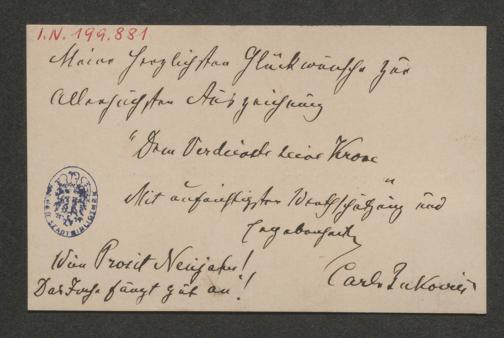 I.N. 199.881
Meine herzlichsten Glückwünsche zur
Allerhöchsten Auszeichnung
"Dem Verdienste seine Krone"
Mit aufrichtigster Wertschätzung und
Ergebenheit
Wien Prosit Neujahr!
Das Jahr fängt gut an!
Carl